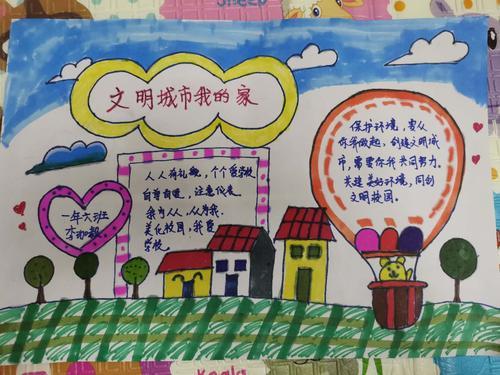 文明城市我的家
一年六班
李加毅
人人有礼貌，个个爱学校
自尊自爱，注意仪表
我为人人，人人为我.
美化校园，我爱
学校。
保护环境，要从
你我做起，创建文明城
市，需要你我共同努力，
共建美好环境，同创
文明校园。
Koala